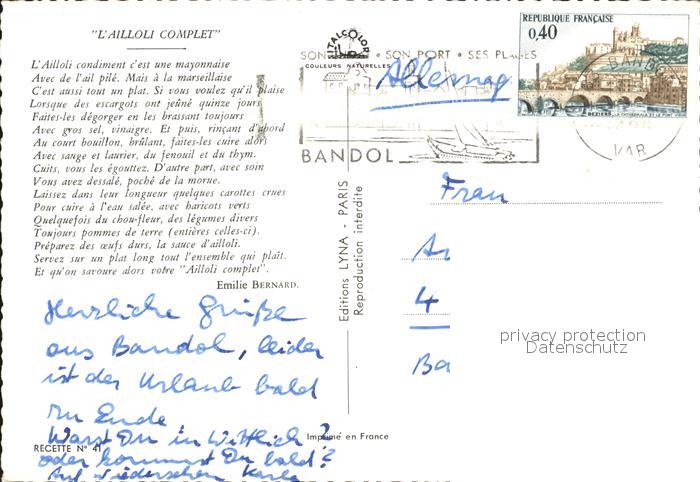 "L'AILLOLI COMPLET"
L'Ailloli condiment c'est une mayonnaise
Avec de l'ail pilé. Mais à la marseillaise
C'est aussi tout un plat. Si vous voulez qu'il plaise
Lorsque des escargots ont jeûné quinze jours
Faites-les dégorger en les brassant toujours
Avec gros sel, vinaigre. Et puis, rinçant d'abord
Au court bouillon, brûlant, faites-les cuire alors
Avec sauge et laurier, du fenouil et du thym.
Cuits, vous les égouttez. D'autre part, avec soin
Vous avez dessalé, poché de la morue.
Laissez dans leur longueur quelques carottes crues
Pour cuire à l'eau salée, avec haricots verts
Quelquefois du chou-fleur, des légumes divers
Toujours pommes de terre (entières celles-ci).
Préparez des œufs durs, la sauce d'ailloli.
Servez sur un plat long tout l'ensemble qui plaît.
Et qu'on savoure alors votre "Ailloli complet".
Emilie BERNARD.
Herzliche Grüße
aus Bandol, leider
ist der Urlaub bald
zu Ende
Warst Du in Wittlich?
oder kommst Du bald?
Auf Wiedersehen Karla
RECETTE N° 41
Imprimé en France
Editions LYNA - PARIS
Reproduction interdite
ITALCOLOR
COULEURS NATURELLES
SON PORT • SES PLAGES
BANDOL
Allemag
REPUBLIQUE FRANÇAISE
0,40
BEZIERS
VAR
Frau
4
Ba
privacy protection
Datenschutz